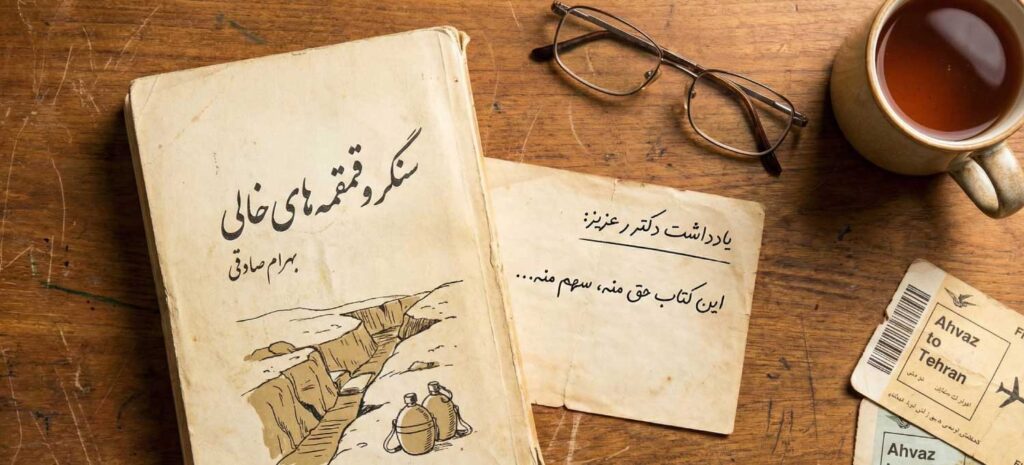 سنگر و قمقمه های خالی
بهرام صادقی
یادداشت دکتر ر عزیز:
این کتاب حق منه، سهم منه...
Ahvaz
to
Tehran
Ahvaz